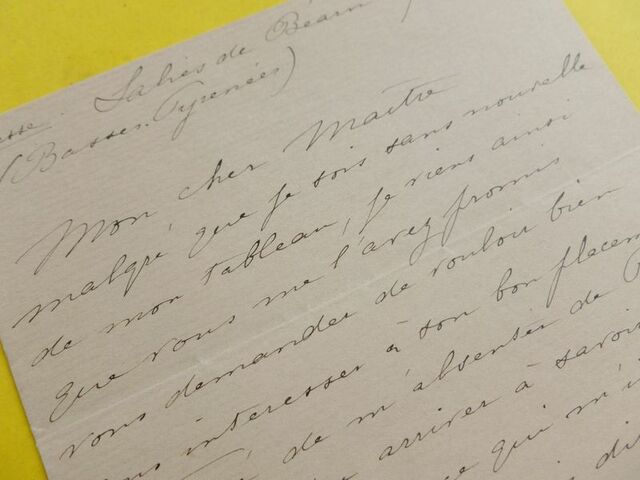 esse. Salies de Béarn
(Basses-Pyrenées)
Mon cher Maître
malgré que je sois sans nouvelle
de mon tableau, je viens ainsi
que vous me l'avez promis
vous demander de vouloir bien
vous interesser à son bon placem
de m'absenter de
arriver à savoir
ce qui m'i
di